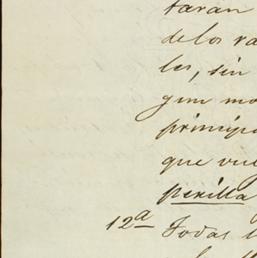 taran
de los ra
les, sin
gun mo
princip
que vue
perilla
12ª Todas l